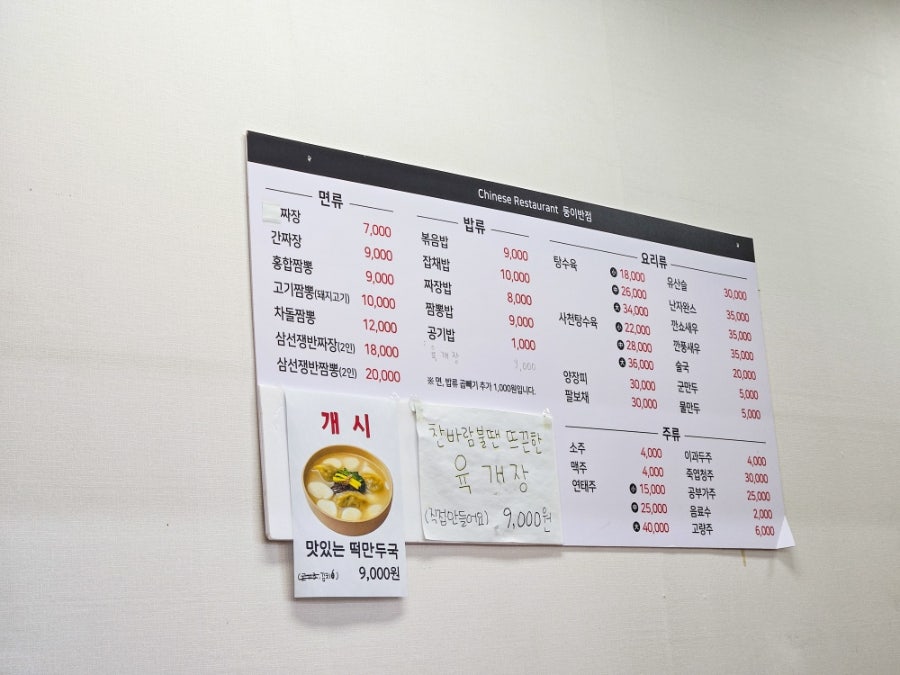 Chinese Restaurant 둥이반점
면류
짜장 7,000
간짜장 9,000
홍합짬뽕 9,000
고기짬뽕(돼지고기) 10,000
차돌짬뽕 12,000
삼선쟁반짜장(2인) 18,000
삼선쟁반짬뽕(2인) 20,000
밥류
볶음밥 9,000
잡채밥 10,000
짜장밥 8,000
짬뽕밥 9,000
공기밥 1,000
육개장 9,000
※ 면, 밥류 곱빼기 추가 1,000원입니다.
요리류
탕수육 小 18,000
中 26,000
大 34,000
사천탕수육 小 22,000
中 28,000
大 36,000
양장피 30,000
팔보채 30,000
유산슬 30,000
난자완스 35,000
깐쇼새우 35,000
깐풍새우 35,000
술국 20,000
군만두 5,000
물만두 5,000
주류
소주 4,000
맥주 4,000
연태주 小 15,000
中 25,000
大 40,000
이과두주 4,000
죽엽청주 30,000
공부가주 25,000
음료수 2,000
고량주 6,000
개시
맛있는 떡만두국
9,000원
찬바람불땐 뜨끈한
육개장
(직접만들어요) 9,000원